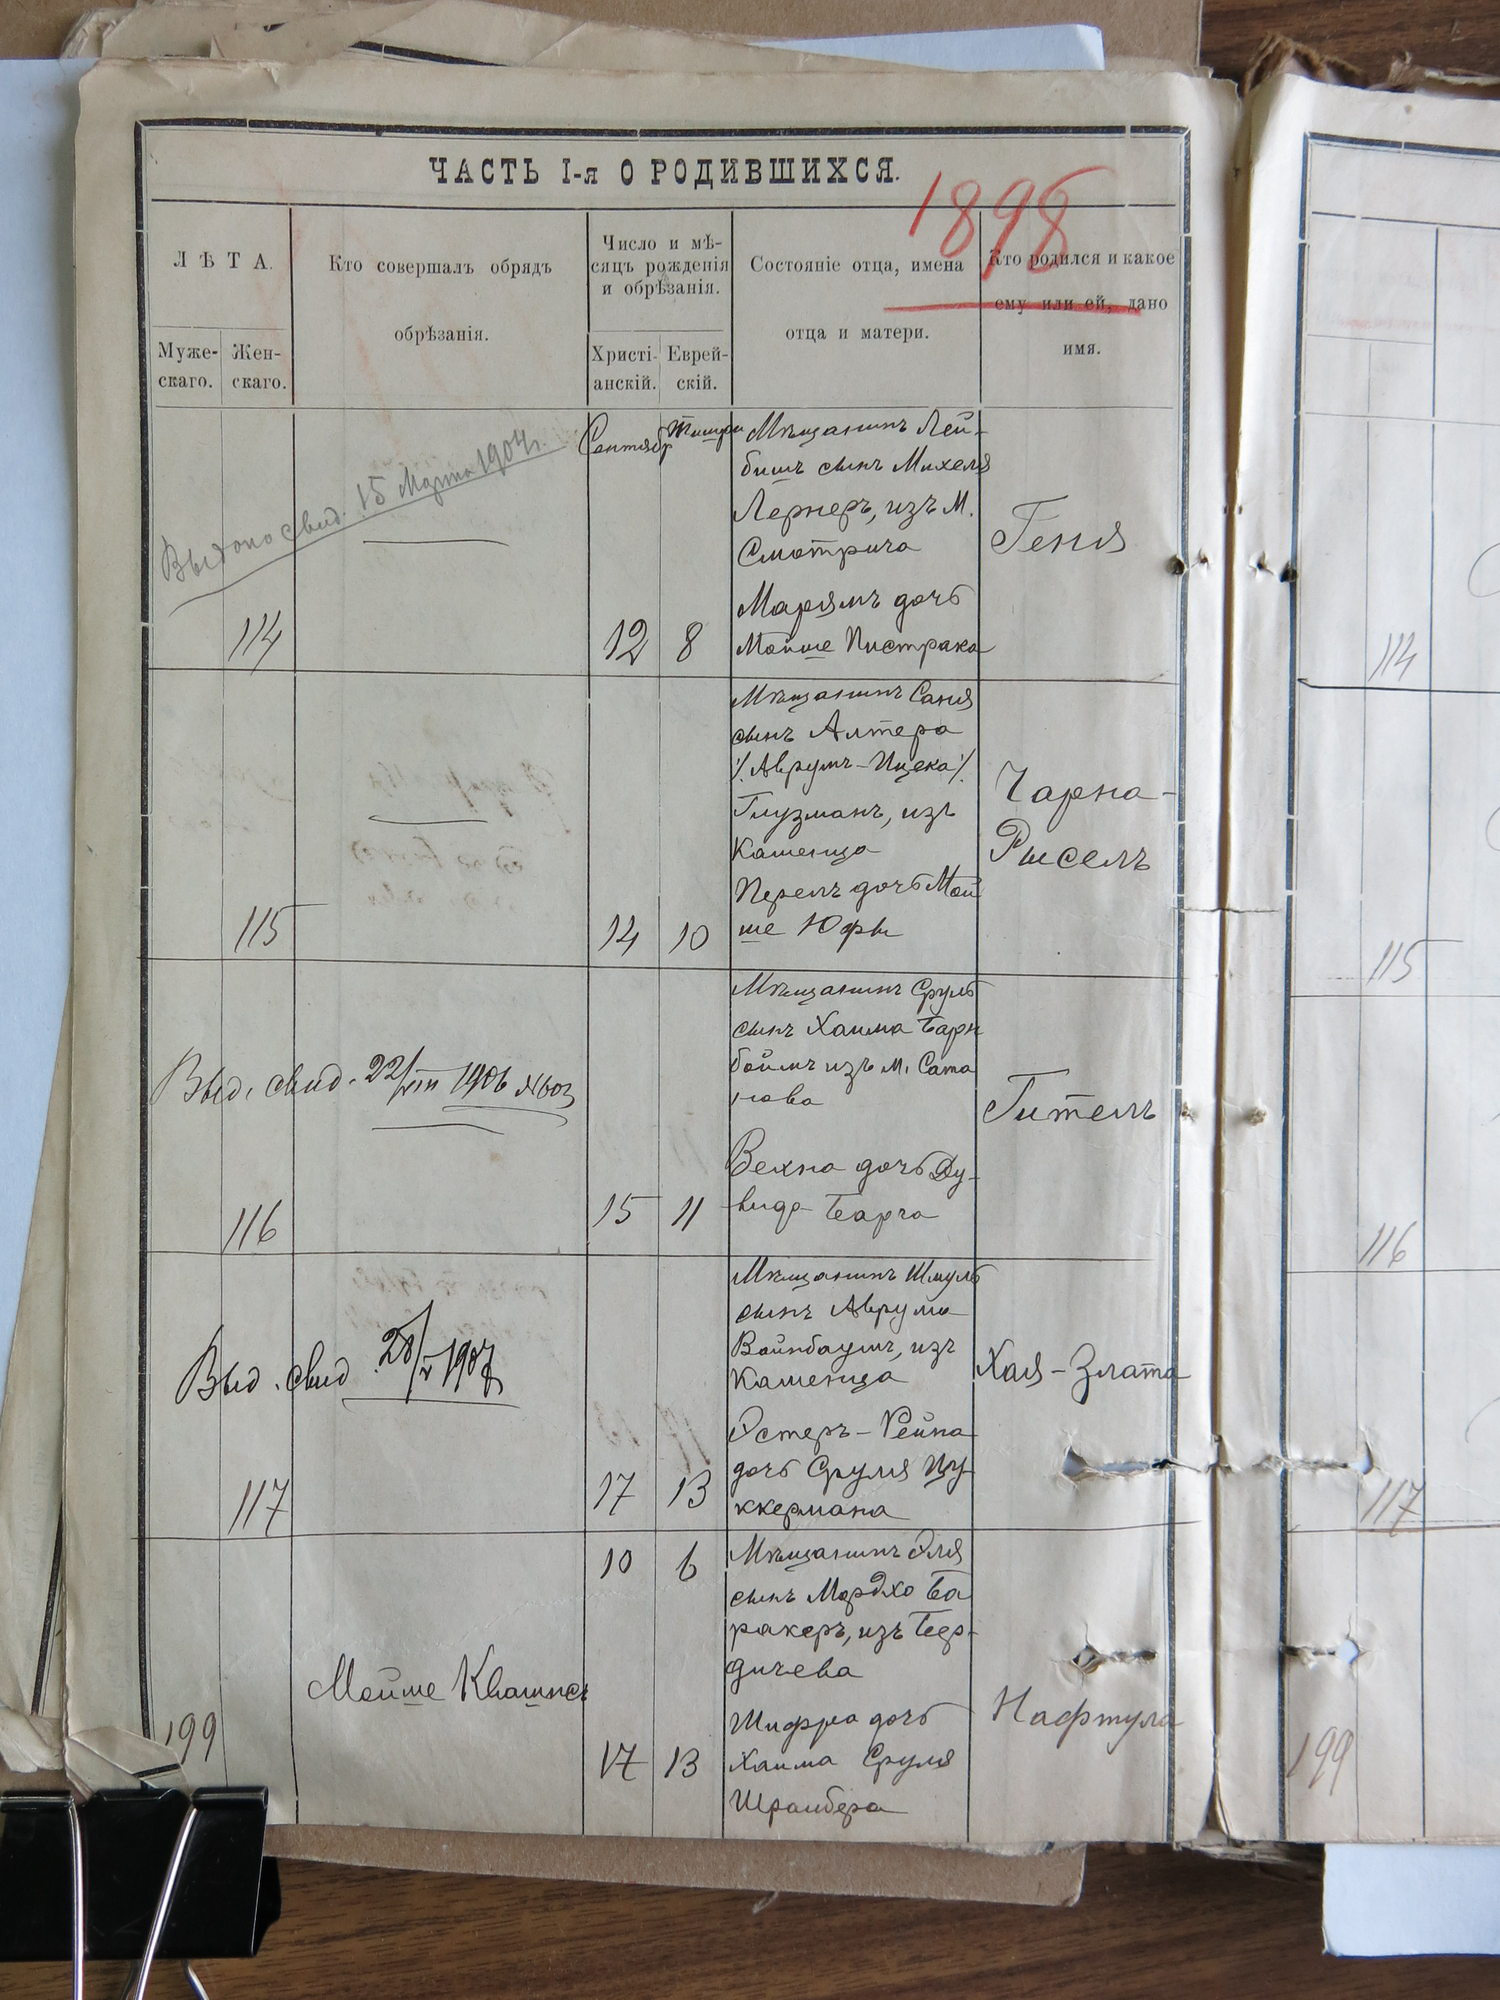 ЧАСТЬ I-я О РОДИВШИХСЯ.
1898
ЛѢТА.
Муже-
скаго.
Жен-
скаго.
Кто совершалъ обрядъ
обрѣзанія.
Число и мѣ-
сяцъ рожденія
и обрѣзанія.
Христі-
анскій.
Еврей-
скій.
Состояніе отца, имена
отца и матери.
Кто родился и какое
ему или ей, дано
имя.
Выдано свид. 15 Марта 1904 г.
114
Сентябр
12
Тишри
8
Мѣщанинъ Лей-
бишъ сынъ Михеля
Лернеръ, изъ м.
Смотрича
Марямъ дочь
Мойше Пистрака
Геня
114
115
14
10
Мѣщанинъ Саня
сынъ Алтера
/Аврумъ-Ицека/
Глузманъ, изъ
Каменца
Перель дочь Мой
ше Юфы
Чарна-
Рысель
115
Выд. свид. 22/VIII 1906
116
15
11
Мѣщанинъ Сруль
сынъ Хаима Барн
боймъ изъ м. Сата
нова
Вехна дочь Ду-
вида
Гитель
116
Выд. свид 20/V 1907
117
17
13
Мѣщанинъ Шмуль
сынъ Аврума
Вайнбаумъ, изъ
Каменца
Эстеръ-Рейпа
дочь Сруля Цу-
ккермана
Хая-Злата
117
199
Мойше
10
17
6
13
Мѣщанинъ Эля
сынъ Мордхо Ба
ракеръ, изъ Бер-
дичева
Шифра дочь
Хаима Сруля
Шрайбера
Нафтула
199